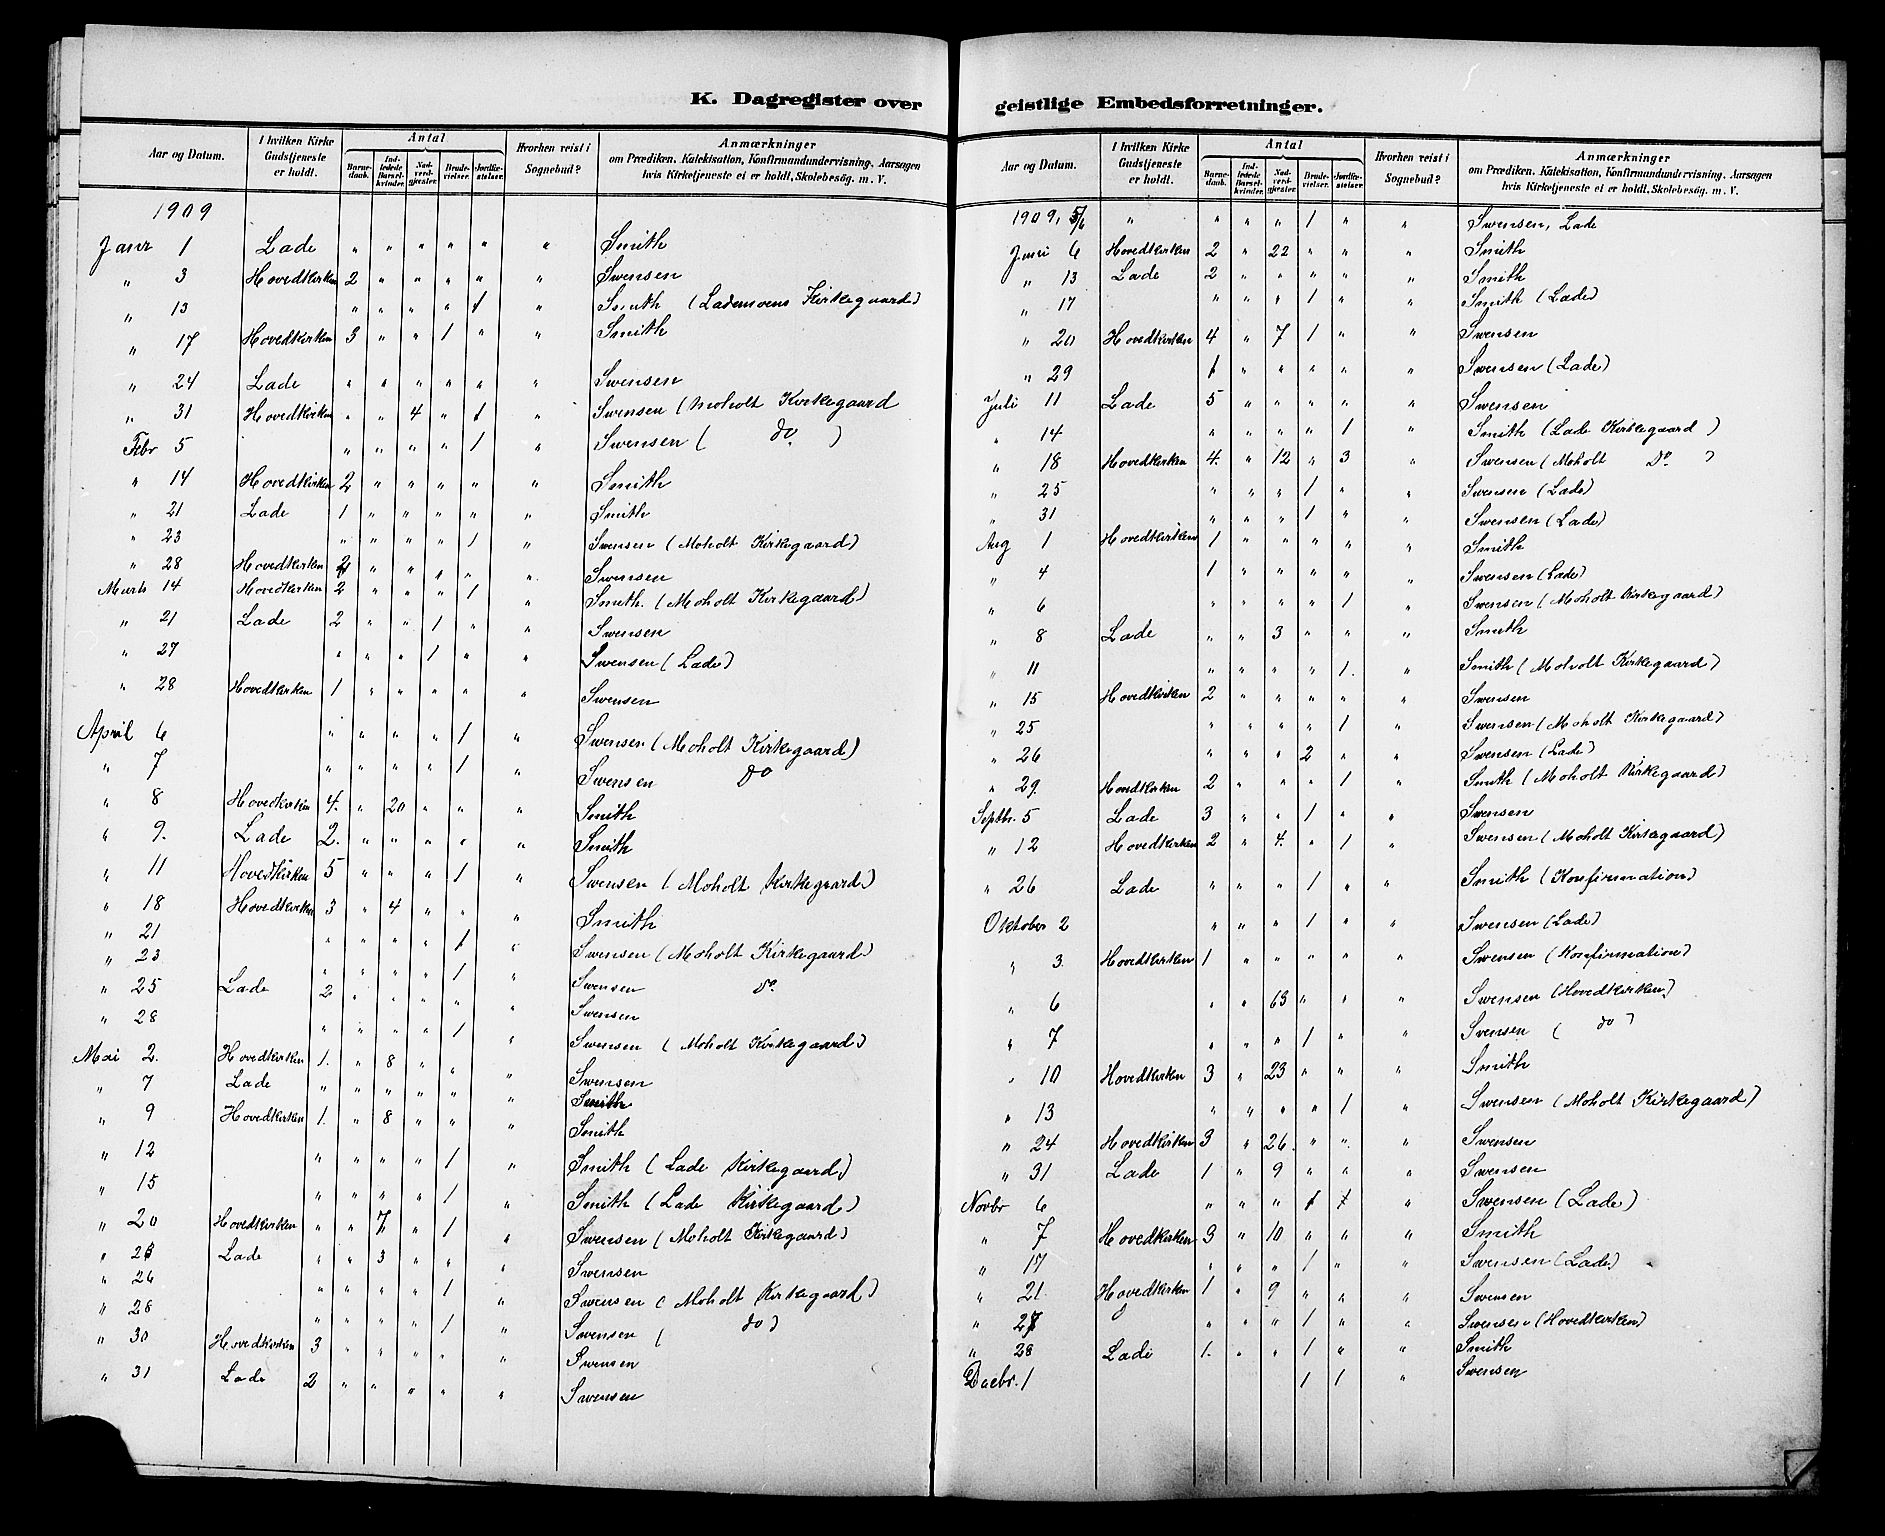 K. Dagregister over
Aar og Datum. I hvilken Kirke Gudstjeneste er holdt. Antal Barnedaab. Indledede Barselkvinder. Nadverdgjester. Brudevielser. Jordfæstelser. Hvorhen reist i Sognebud? Anmærkninger om Prædiken, Katekisation, Konfirmandundervisning, Aarsagen hvis Kirketjeneste ei er holdt, Skolebesøg. m. V.
1909
Janr 1 Lade " " " " " " Smith
" 3 Hovedkirken 2 " " " " " Swensen
" 13 " " " " 1 " Smith (Lademoens Kirkegaard)
" 17 Hovedkirken 3 " " 1 " " Smith
" 24 Lade " " " " " " Swensen
" 31 Hovedkirken " " 4 " 1 " Swensen (Moholt Kirkegaard
Febr 5 " " " " 1 " Swensen ( do )
" 14 Hovedkirken 2 " " " " " Smith
" 21 Lade 1 " " " " " Smith
" 23 " " " " 1 " Swensen (Moholt Kirkegaard)
" 28 Hovedkirken 2 " " " " " Swensen
Marts 14 Hovedkirken 2 " " " 1 " Smith. (Moholt Kirkegaard)
" 21 Lade 2 " " 1 " " Swensen
" 27 " " " 1 " " Swensen (Lade)
" 28 Hovedkirken 1 " " " " " Swensen
April 6 " " " " 1 " Swensen (Moholt Kirkegaard)
" 7 " " " " 1 " Swensen do
" 8 Hovedkirken 4. " 20 " " " Smith
" 9. Lade 2. " " " " " Smith
" 11 Hovedkirken 5 " " " 1 " Swensen (Moholt Kirkegaard)
" 18 Hovedkirken 3 " 4 " " " Smith
" 21 " " " " 1 " Swensen (Moholt Kirkegaard)
" 23 " " " " 1 " Swensen do.
" 25 Lade 2 " " " " " Swensen
" 28 " " " " 1 " Swensen (Moholt Kirkegaard)
Mai 2. Hovedkirken 1. " 8 " " " Swensen
" 7 Lade " " " " " " Smith
" 9 Hovedkirken 1. " 8 " " " Smith
" 12 " " " " 1 " Smith (Lade Kirkegaard)
" 15 " " " " 1 " Smith (Lade Kirkegaard)
" 20 Hovedkirken " " 7 " 1 " Swensen (Moholt Kirkegaard)
" 23 Lade " " 3 " " " Swensen
" 26 " " " " 1 " Swensen (Moholt Kirkegaard)
" 28 " " " " 1 " Swensen ( do )
" 30 Hovedkirken 3 " " " " " Swensen
" 31 Lade 2 " " " " " Swensen
geistlige Embedsforretninger.
Aar og Datum. I hvilken Kirke Gudstjeneste er holdt. Antal Barnedaab. Indledede Barselkvinder. Nadverdgjester. Brudevielser. Jordfæstelser. Hvorhen reist i Sognebud? Anmærkninger om Prædiken, Katekisation, Konfirmandundervisning, Aarsagen hvis Kirketjeneste ei er holdt, Skolebesøg. m. V.
1909, 5/6 " " " " 1 " " Swensen, Lade
Juni 6 Hovedkirken 2 " 22 " " " Smith
" 13 Lade 2 " " " " " Smith
" 17 " " " 1 " " Smith (Lade)
" 20 Hovedkirken 4 " 7 1 " " Swensen
" 29 1 " " " " " Swensen (Lade)
Juli 11 Lade 5 " " " " " Swensen
" 14 " " " " 1 " Smith (Lade Kirkegaard)
" 18 Hovedkirken 4. " 12 " 3 " Swensen (Moholt Do. )
" 25 " " " 1 " " Swensen (Lade)
" 31 " " " 1 " " Swensen (Lade)
Aug 1 Hovedkirken 1 " " " " " Smith
" 4 1 " " " " " Swensen (Lade)
" 6 " " " " 1 " Swensen (Moholt Kirkegaard)
" 8 Lade " " 3 " " " Smith
" 11 " " " " 1. " Smith (Moholt Kirkegaard)
" 15 Hovedkirken 2 " " " " " Swensen
" 25 " " " " 1 " Swensen (Moholt Kirkegaard)
" 26 " " " 2 " " Swensen (Lade)
" 29. Hovedkirken 2 " " " 1 " Smith (Moholt Kirkegaard)
Septbr. 5 Lade 3 " " 1 " " Swensen
" 12 Hovedkirken 2 " 4. " 1 " Swensen (Moholt Kirkegaard)
" 26 Lade " " " 1 " " Smith (Konfirmation)
Oktober 2 " " " 1 " " Swensen (Lade)
" 3. Hovedkirken 1 " " " " " Swensen (Konfirmation)
" 6 " " 63 " " " Swensen (Hovedkirken)
" 7 " " " 1 " " Svensen ( do )
" 10 Hovedkirken 3 " 23 " " " Smith
" 13 " " " " 1 " Swensen (Moholt Kirkegaard)
" 24 Hovedkirken 3 " 26. " " " Swensen
" 31 Lade 1 " 9 " " " Swensen
Novbr 6 " " " 1 " Swensen (Lade)
" 7 Hovedkirken 3 " 10 " " " Smith
" 17 " " " 1 " " Swensen (Lade)
" 21 Hovedkirken 1 " 9 " " " Swensen
" 27 " " " 1 " " Swensen (Hovedkirken)
" 28 Lade 1. " " 1 " " Smith
Decbr. 1 1 1 " Swensen